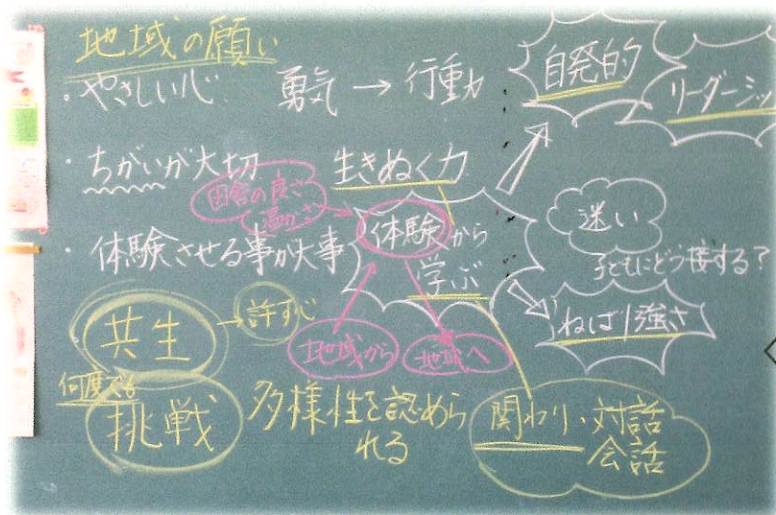 地域の願い
・やさしい心 勇気 → 行動力
自発的
リーダーシッ
・ちがいが大切
生きぬく力
田舎の良さ
温かさ
・体験させる事が大事
体験から
学ぶ
迷い
子どもにどう接する?
ねばり強さ
共生 → 許す心
地域から
地域へ
何度でも
挑戦
多様性を認めら
れる
関わり・対話
会話